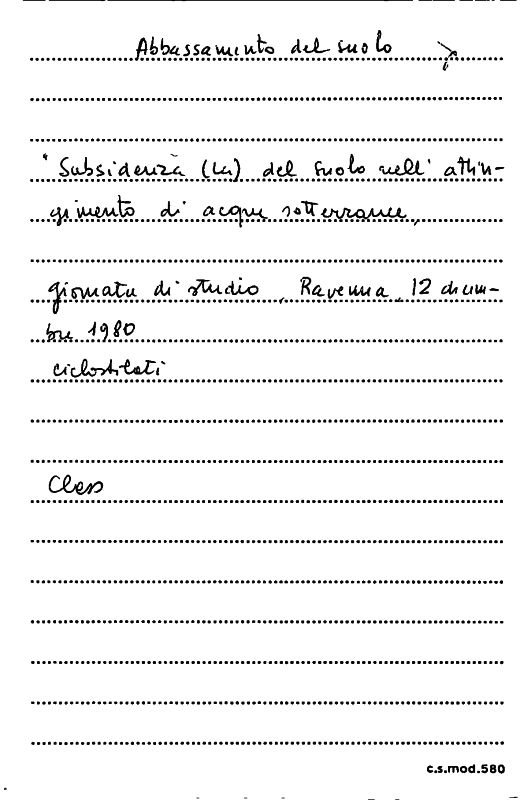 Abbassamento del suolo
"Subsidenza (La) del suolo nell'attin-
gimento di acque sotterranee,
giornata di studio, Ravenna, 12 dicem-
bre 1980
ciclostilati
Class
c.s.mod.580